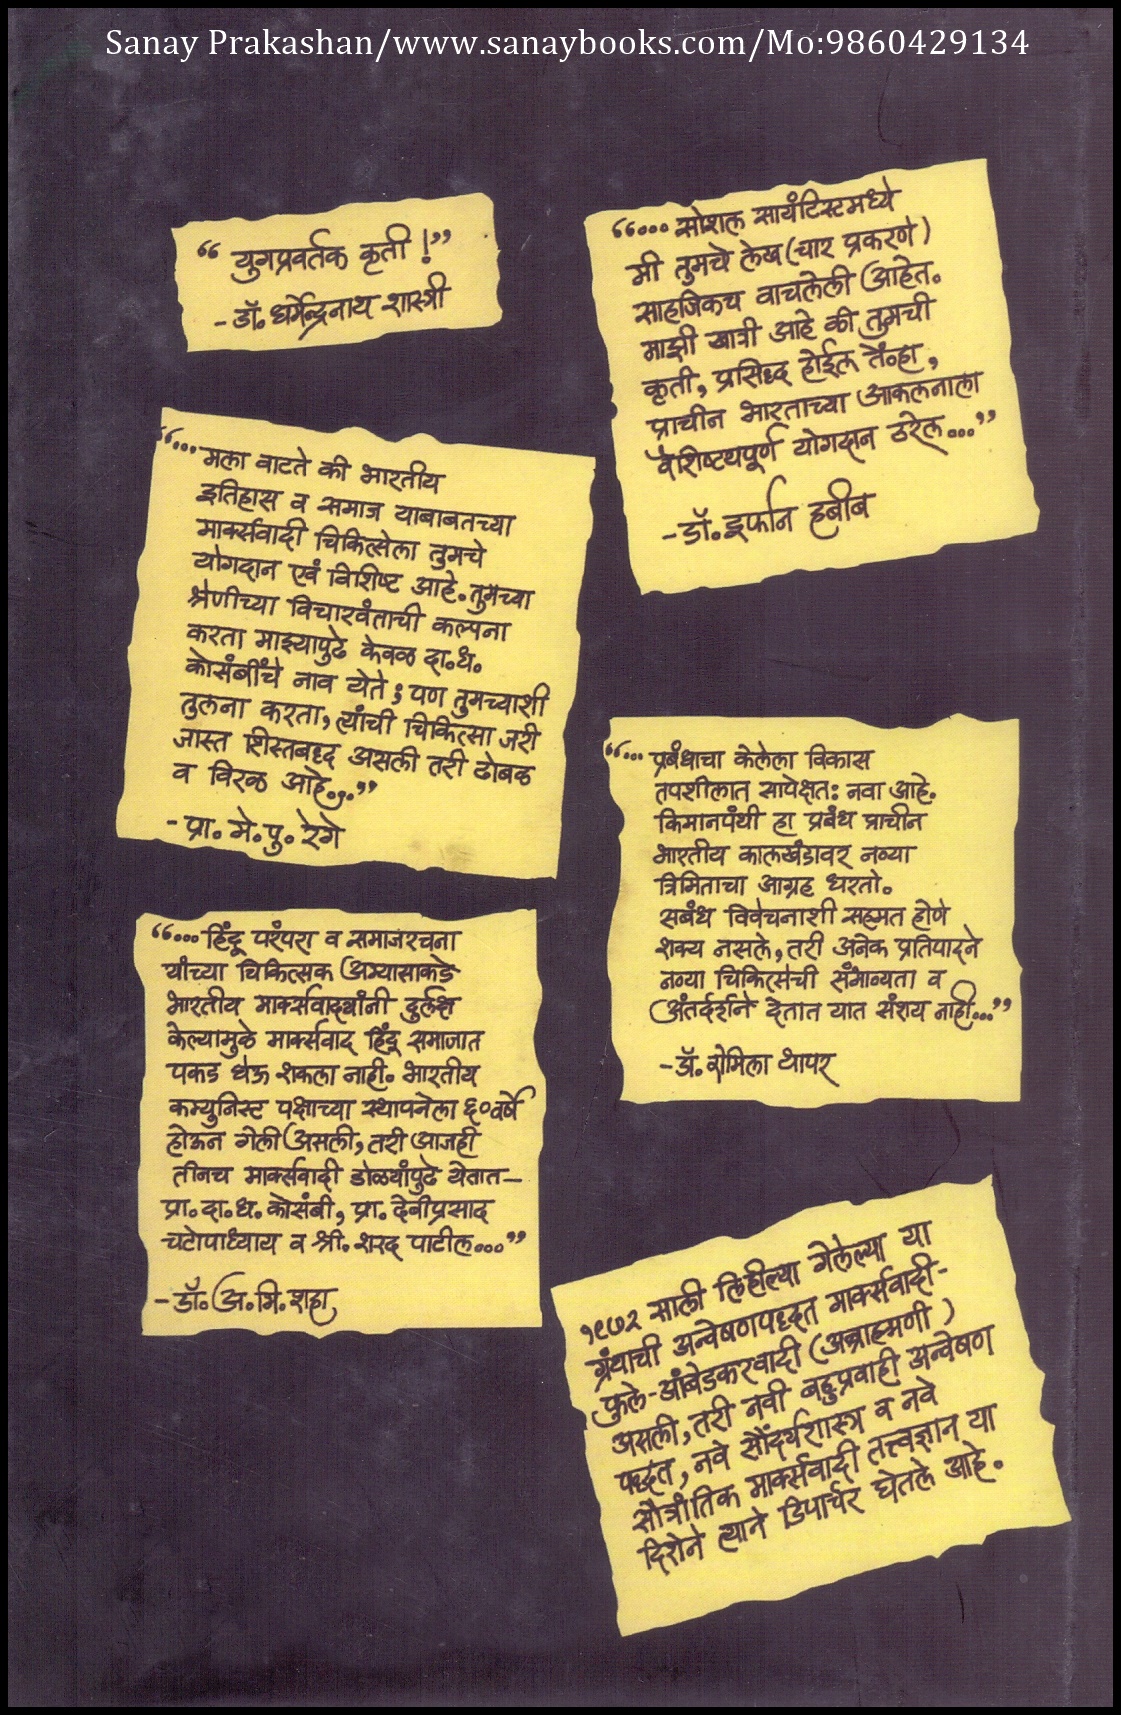 Sanay Prakashan/www.sanaybooks.com/Mo:9860429134
“ युगप्रवर्तक कृती !”
- डॉ. धर्मेन्द्रनाथ शास्त्री
“... सोशल सायंटिस्टमध्ये
मी तुमचे लेख (चार प्रकरणे)
साहजिकच वाचलेली आहेत.
माझी खात्री आहे की तुमची
कृती, प्रसिद्ध होईल तेंव्हा,
प्राचीन भारताच्या आकलनाला
वैशिष्ट्यपूर्ण योगदान ठरेल...”
- डॉ. इर्फान हबीब
“... मला वाटते की भारतीय
इतिहास व समाज याबाबतच्या
मार्क्सवादी चिकित्सेला तुमचे
योगदान एवं विशिष्ट आहे. तुमच्या
श्रेणीच्या विचारवंताची कल्पना
करता माझ्यापुढे केवळ दा. ध.
कोसंबींचे नाव येते ; पण तुमच्याशी
तुलना करता, त्यांची चिकित्सा जरी
जास्त शिस्तबद्ध असली तरी ढोबळ
व विरळ आहे...”
- प्रा. मे. पु. रेगे
“... प्रबंधाचा केलेला विकास
तपशीलात सापेक्षतः नवा आहे.
किमानपंथी हा प्रबंध प्राचीन
भारतीय कालखंडावर नव्या
त्रिमिताचा आग्रह धरतो.
सबंध विवेचनाशी सहमत होणे
शक्य नसले, तरी अनेक प्रतिपादने
नव्या चिकित्सेची संभाव्यता व
अंतर्दर्शने देतात यात संशय नाही...”
- डॉ. रोमिला थापर
“... हिंदू परंपरा व समाजरचना
यांच्या चिकित्सक अभ्यासाकडे
भारतीय मार्क्सवाद्यांनी दुर्लक्ष
केल्यामुळे मार्क्सवाद हिंदू समाजात
पकड घेऊ शकला नाही. भारतीय
कम्युनिस्ट पक्षाच्या स्थापनेला ६० वर्षे
होऊन गेली असली, तरी आजही
तीनच मार्क्सवादी डोळ्यांपुढे येतात –
प्रा. दा. ध. कोसंबी, प्रा. देवीप्रसाद
चटोपाध्याय व श्री. शरद पाटील...”
- डॉ. अ. भि. शहा
१९७२ साली लिहील्या गेलेल्या या
ग्रंथाची अन्वेषणपद्धत मार्क्सवादी-
फुले-आंबेडकरवादी (अब्राह्मणी)
असली, तरी नवी बहुप्रवाही अन्वेषण
पद्धत, नवे सौंदर्यशास्त्र व नवे
सौत्रांतिक मार्क्सवादी तत्त्वज्ञान या
दिशेने त्याने डिपार्चर घेतले आहे.